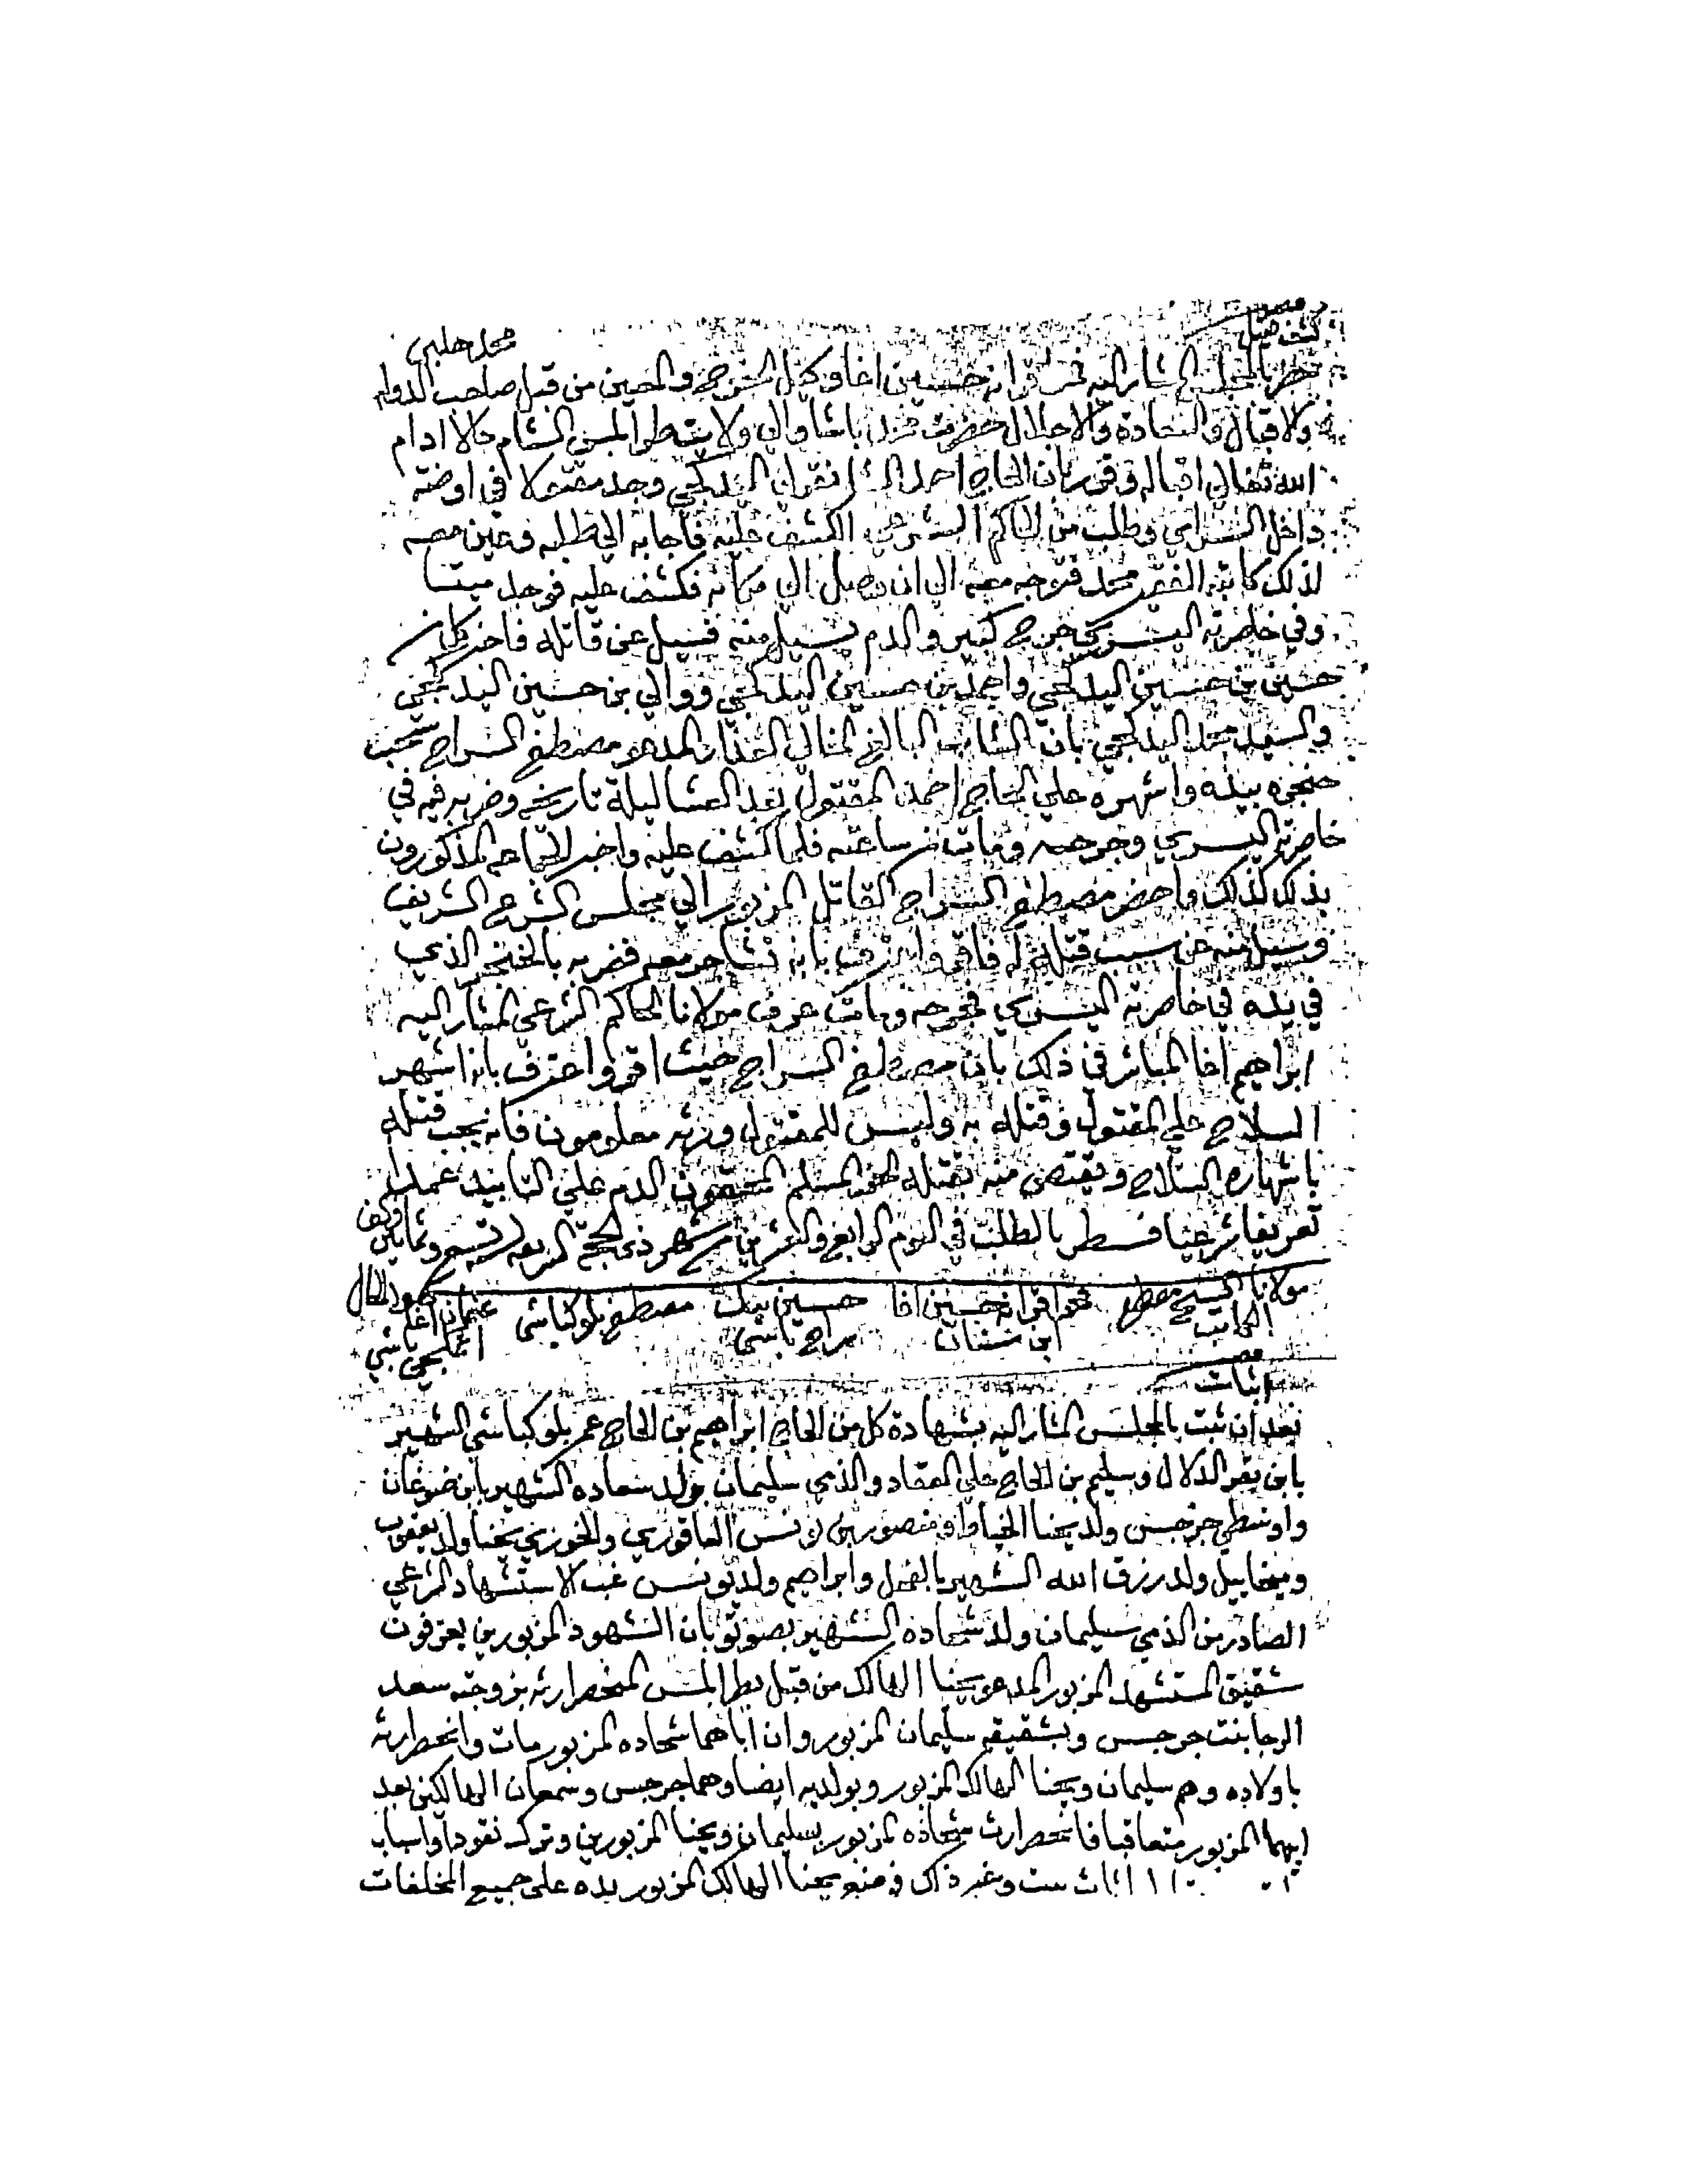 كشف قتيل
محمد جلبي
حضر بالمجلس المشار اليه فخر اقرانه حسين اغا وكيل الخرج والمعين من قبل صاحب الدوله
والاقبال والسعادة والاجلال حضرت باشا والي ولاية طرابلس الشام حالا ادام
الله تعالى اقباله وقرر بان الحاج احمد البيدكجي وجد مقتولا في اوضته
داخل السراي وطلب من الحاكم الشرعي الكشف عليه فاجابه الى طلبه وعين معه
لذلك كاتبه الفقير محمد فتوجه معه الى ان وصل الى مكانه فكشف عليه فوجد ميتا
وفي خاصرته اليسرى جرح كبير والدم يسيل منه فسيل عن قاتله فاخبر كل من
حسين بن حسين البيدكجي واحمد بن حسين البيدكجي ووالي بن حسين البيدكجي
والسيد محمد البيدكجي بان الشاب البالغ الخالي العذار المدعو مصطفى السراج سحب
خنجره بيده واشهره علي الحاج احمد المقتول بعد العشا ليلة تاريخه وضربه فيه في
خاصرته اليسرى وجرحه ومات من ساعته فلما كشف عليه واخبر الجماعه المذكورون
بذلك كذلك واحضر مصطفى السراج القاتل المزبور الي مجلس الشرع الشريف
وسيل منه عن سبب قتله له فاقر واعترف بانه تشاجر معه فضربه بالخنجر الذي
في يده في خاصرته اليسرى فجرحه ومات عرف مولانا الحاكم الشرعي المشار اليه
ابراهيم اغا المباشر في ذلك بان مصطفى السراج حيث اقر واعترف بانه اشهر
السلاح علي المقتول وقتله به وليس للمقتول ورثه معلومون فانه يجب قتله
باشهاره السلاح ويقتص منه بقتله المسلم المعصوم الدم علي التابيد عمدا
تعريفا شرعيا فسطر بالطلب في اليوم الرابع والعشرين من شهر ذي الحجة لسنة تسع وثمانين والف
شهود الحال
مولانا السيد مصطفى الكاتب فخر اقرانه حسين اغا ابن شنان حسين بيك سراج باشي مصطفى بلوكباشي عثمان اغا اتمكجي باشي
اثبات
بعد ان ثبت بالمجلس المشار اليه بشهادة كل من الحاج ابراهيم بن الحاج عمر بلوكباشي الشهير
بابن بقر الدلال وسليم بن الحاج علي العقاد والذمي سليمان ولد سعاده الشهير بابن ضوعان
واوسطي جرجس ولد يحنا الخياط ومنصور بن يونس العاقوري والخوري يحنا ولد يعقوب
وميخاييل ولد رزق الله الشهير بالفحل وابراهيم ولد يونس غب الاستشهاد الشرعي
الصادر من الذمي سليمان ولد شحاده الشهير بصوتو بان الشهود المزبورين يعرفون
شقيق المستشهد المزبور المدعو يحنا الهالك من قبل بطرابلس المنحصر ارثه بزوجته سعد
الرجا بنت جرجس وبشقيقه سليمان المزبور وان اباهما شحاده المزبور مات وانحصر ارثه
باولاده وهم سليمان ويحنا الهالك المزبور وبولديه ايضا وهما جرجس وسمعان الهالكين بعد
ابيهما المزبور متعاقبا فانحصر ارث شحاده المزبور بسليمان ويحنا المزبورين وترك نقودا واسباب
اثاث بيت وغير ذلك فوضع يحنا الهالك المزبور يده على جميع المخلفات